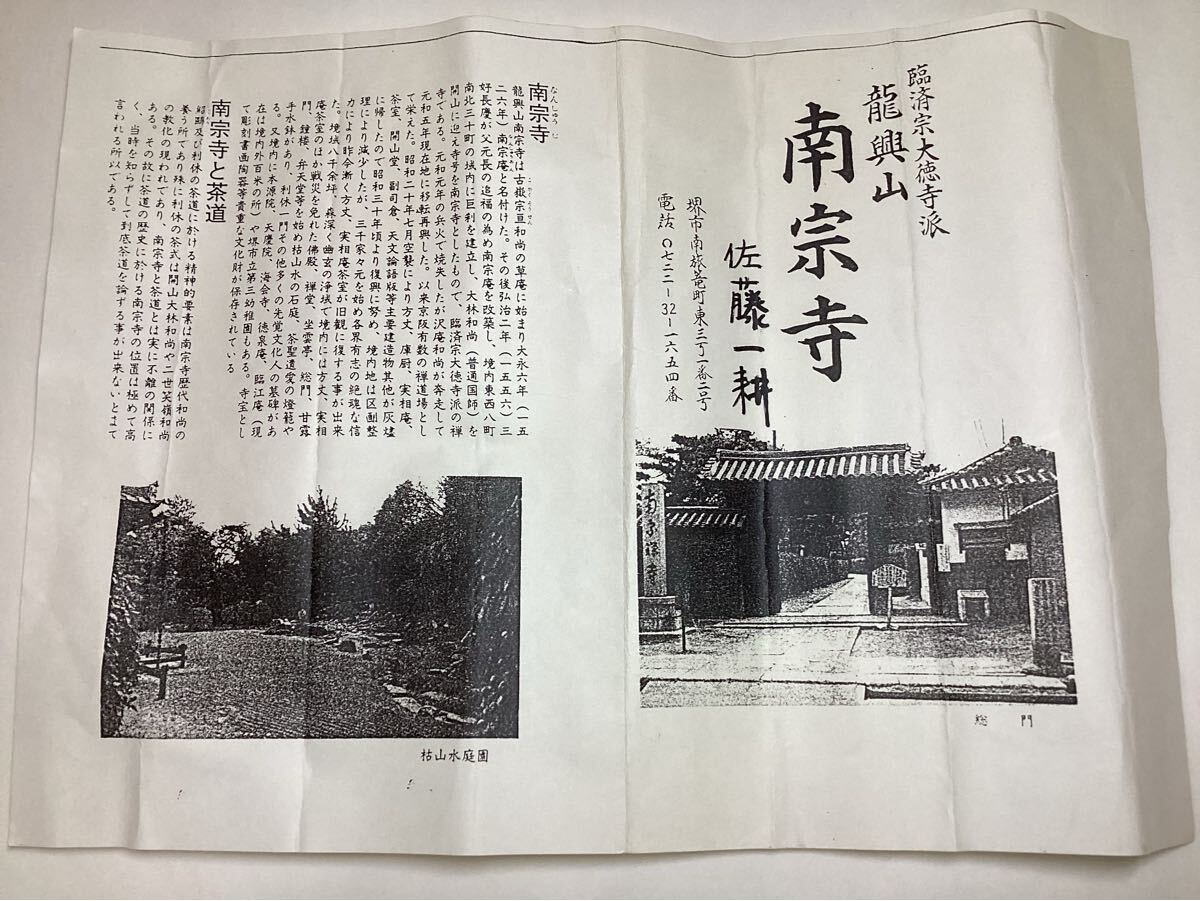 臨済宗大徳寺派
龍興山
南宗寺
佐藤一耕
堺市南旅篭町東三丁一番二号
電話 〇七二二―32―一六五四番
南宗禅寺
総門
なんしゅうじ
南宗寺
龍興山南宗寺は古嶽宗亘和尚の草庵に始まり大永六年(一五
二六年)南宗庵と名付けた。その後弘治二年(一五五六)三
好長慶が父元長の追福の為め南宗庵を改築し、境内東西八町
南北三十町の域内に巨刹を建立し、大林和尚(普通国師)を
開山に迎え寺号を南宗寺としたもので、臨済宗大徳寺派の禅
寺である。元和元年の兵火で焼失したが沢庵和尚が奔走して
元和五年現在地に移転再興した。以来京阪有数の禅道場とし
て栄えた。昭和二十年七月空襲により方丈、庫厨、実相庵、
茶室、開山堂、副司倉、天文論語版等主要建造物其他が灰燼
に帰したので昭和三十年頃より復興に努め、境内地は区劃整
理により減少したが、三千家々元を始め各界有志の絶魂な信
力により昨今漸く方丈、実相庵茶室が旧観に復する事が出来
た。境域八千余坪、森深く幽玄の浄域で境内には方丈、実相
庵茶室のほか戦災を免れた佛殿、禅堂、坐雲亭、総門、甘露
門、鐘楼、弁天堂等を始め枯山水の石庭、茶聖遺愛の燈籠や
手水鉢があり、利休一門その他多くの先覚文化人の墓碑があ
る。又境内に本源院、天慶院、海会寺、徳泉庵、臨江庵(現
在は境内外百米の所)や堺市立第三幼稚園もある。寺宝とし
て彫刻書画陶器等貴重な文化財が保存されている
南宗寺と茶道
紹鷗及び利休の茶道に於ける精神的要素は南宗寺歴代和尚の
養う所であり殊に利休の茶式は開山大林和尚や二世笑嶺和尚
の教化の現われであり、南宗寺と茶道とは実に不離の関係に
ある。その故に茶道の歴史に於ける南宗寺の位置は極めて高
く、当時を知らずして到底茶道を論ずる事が出来ないとまで
言われる所以である。
枯山水庭園